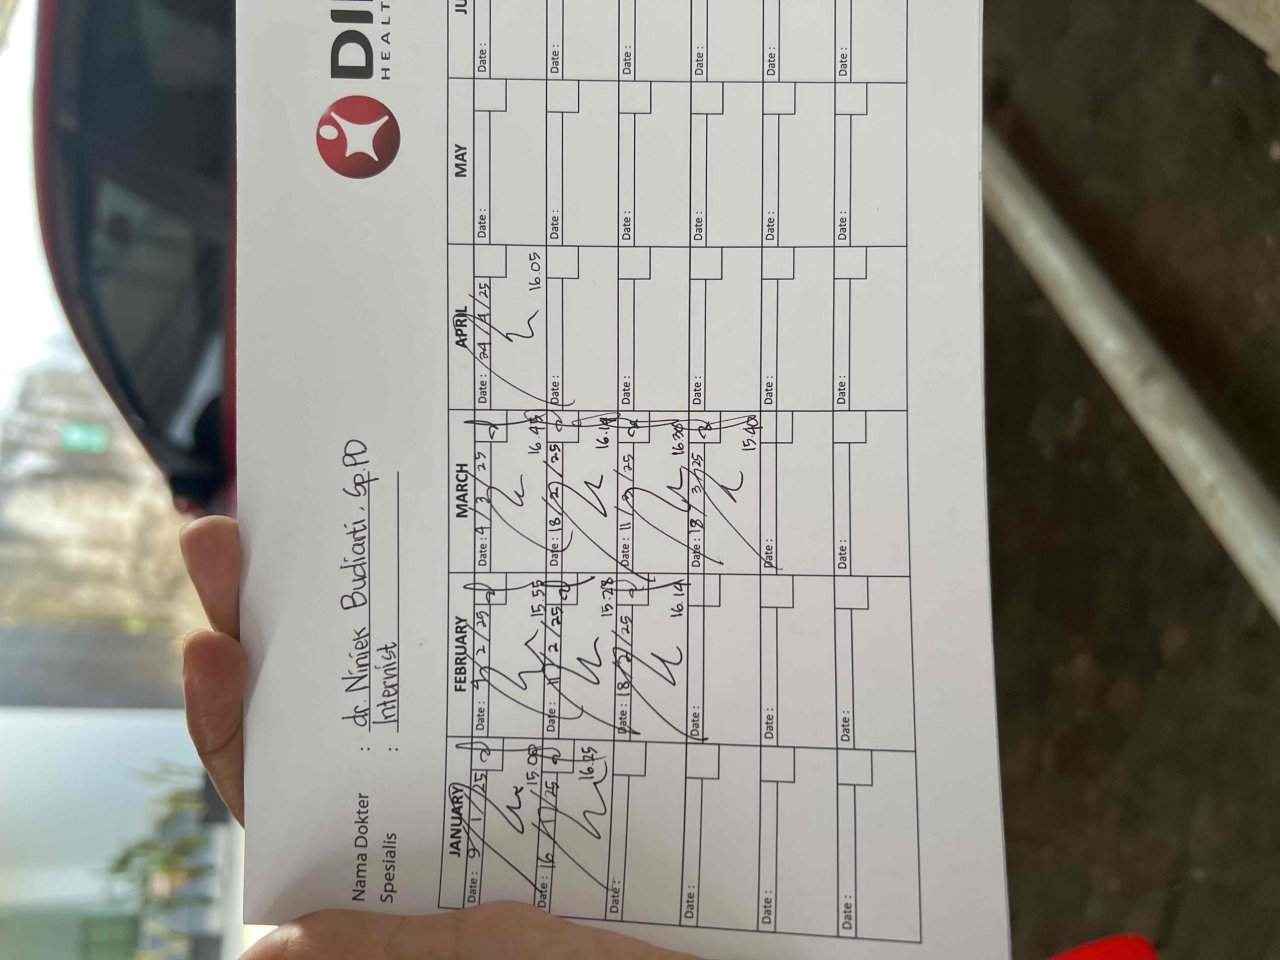 DI
HEALT
Nama Dokter : dr. Niniek Budiarti, Sp.PD
Spesialis : Internist
JANUARY FEBRUARY MARCH APRIL MAY JU
Date: 9/1/25 Date: 4/2/25 Date: 4/3/25 Date: 24/4/25 Date: Date:
15.00 15.55 16.45 16.05
Date: 16/1/25 Date: 11/2/25 Date: 18/2/25 Date: Date: Date:
16.25 15.28 16.14
Date: Date: 18/2/25 Date: 11/3/25 Date: Date: Date:
16.14 16.30
Date: Date: Date: 18/3/25 Date: Date: Date:
15.40
Date: Date: Date: Date: Date: Date:
Date: Date: Date: Date: Date: Date: